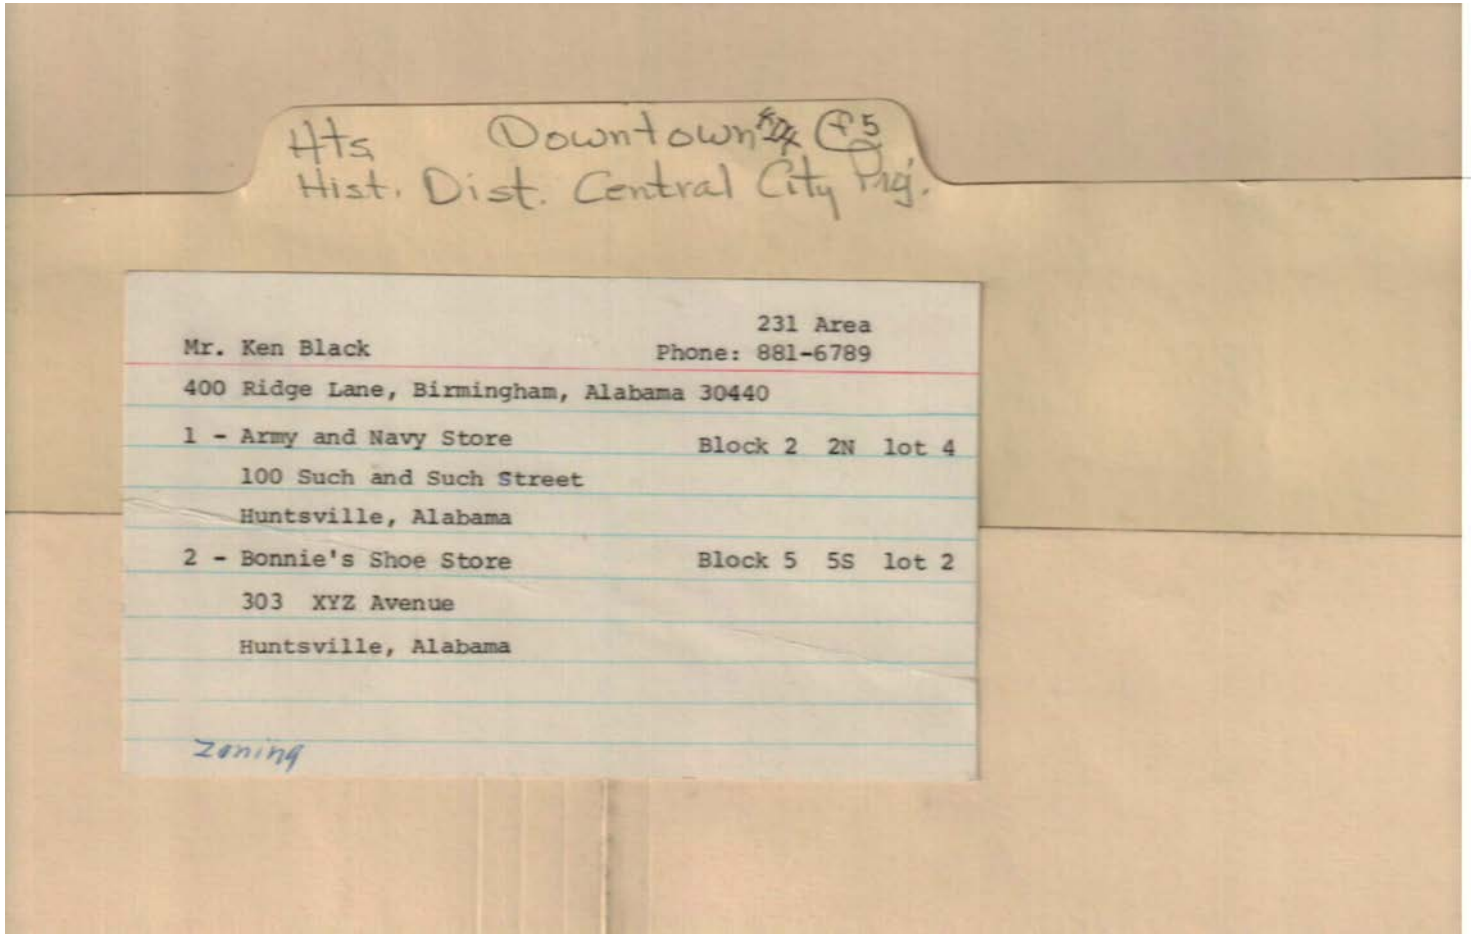 Hts Downtown
Hist. Dist. Central City Proj.
231 Area
Mr. Ken Black Phone: 881-6789
400 Ridge Lane, Birmingham, Alabama 30440
1 - Army and Navy Store Block 2 2N lot 4
100 Such and Such Street
Huntsville, Alabama
2 - Bonnie's Shoe Store Block 5 5S lot 2
303 XYZ Avenue
Huntsville, Alabama
Zoning